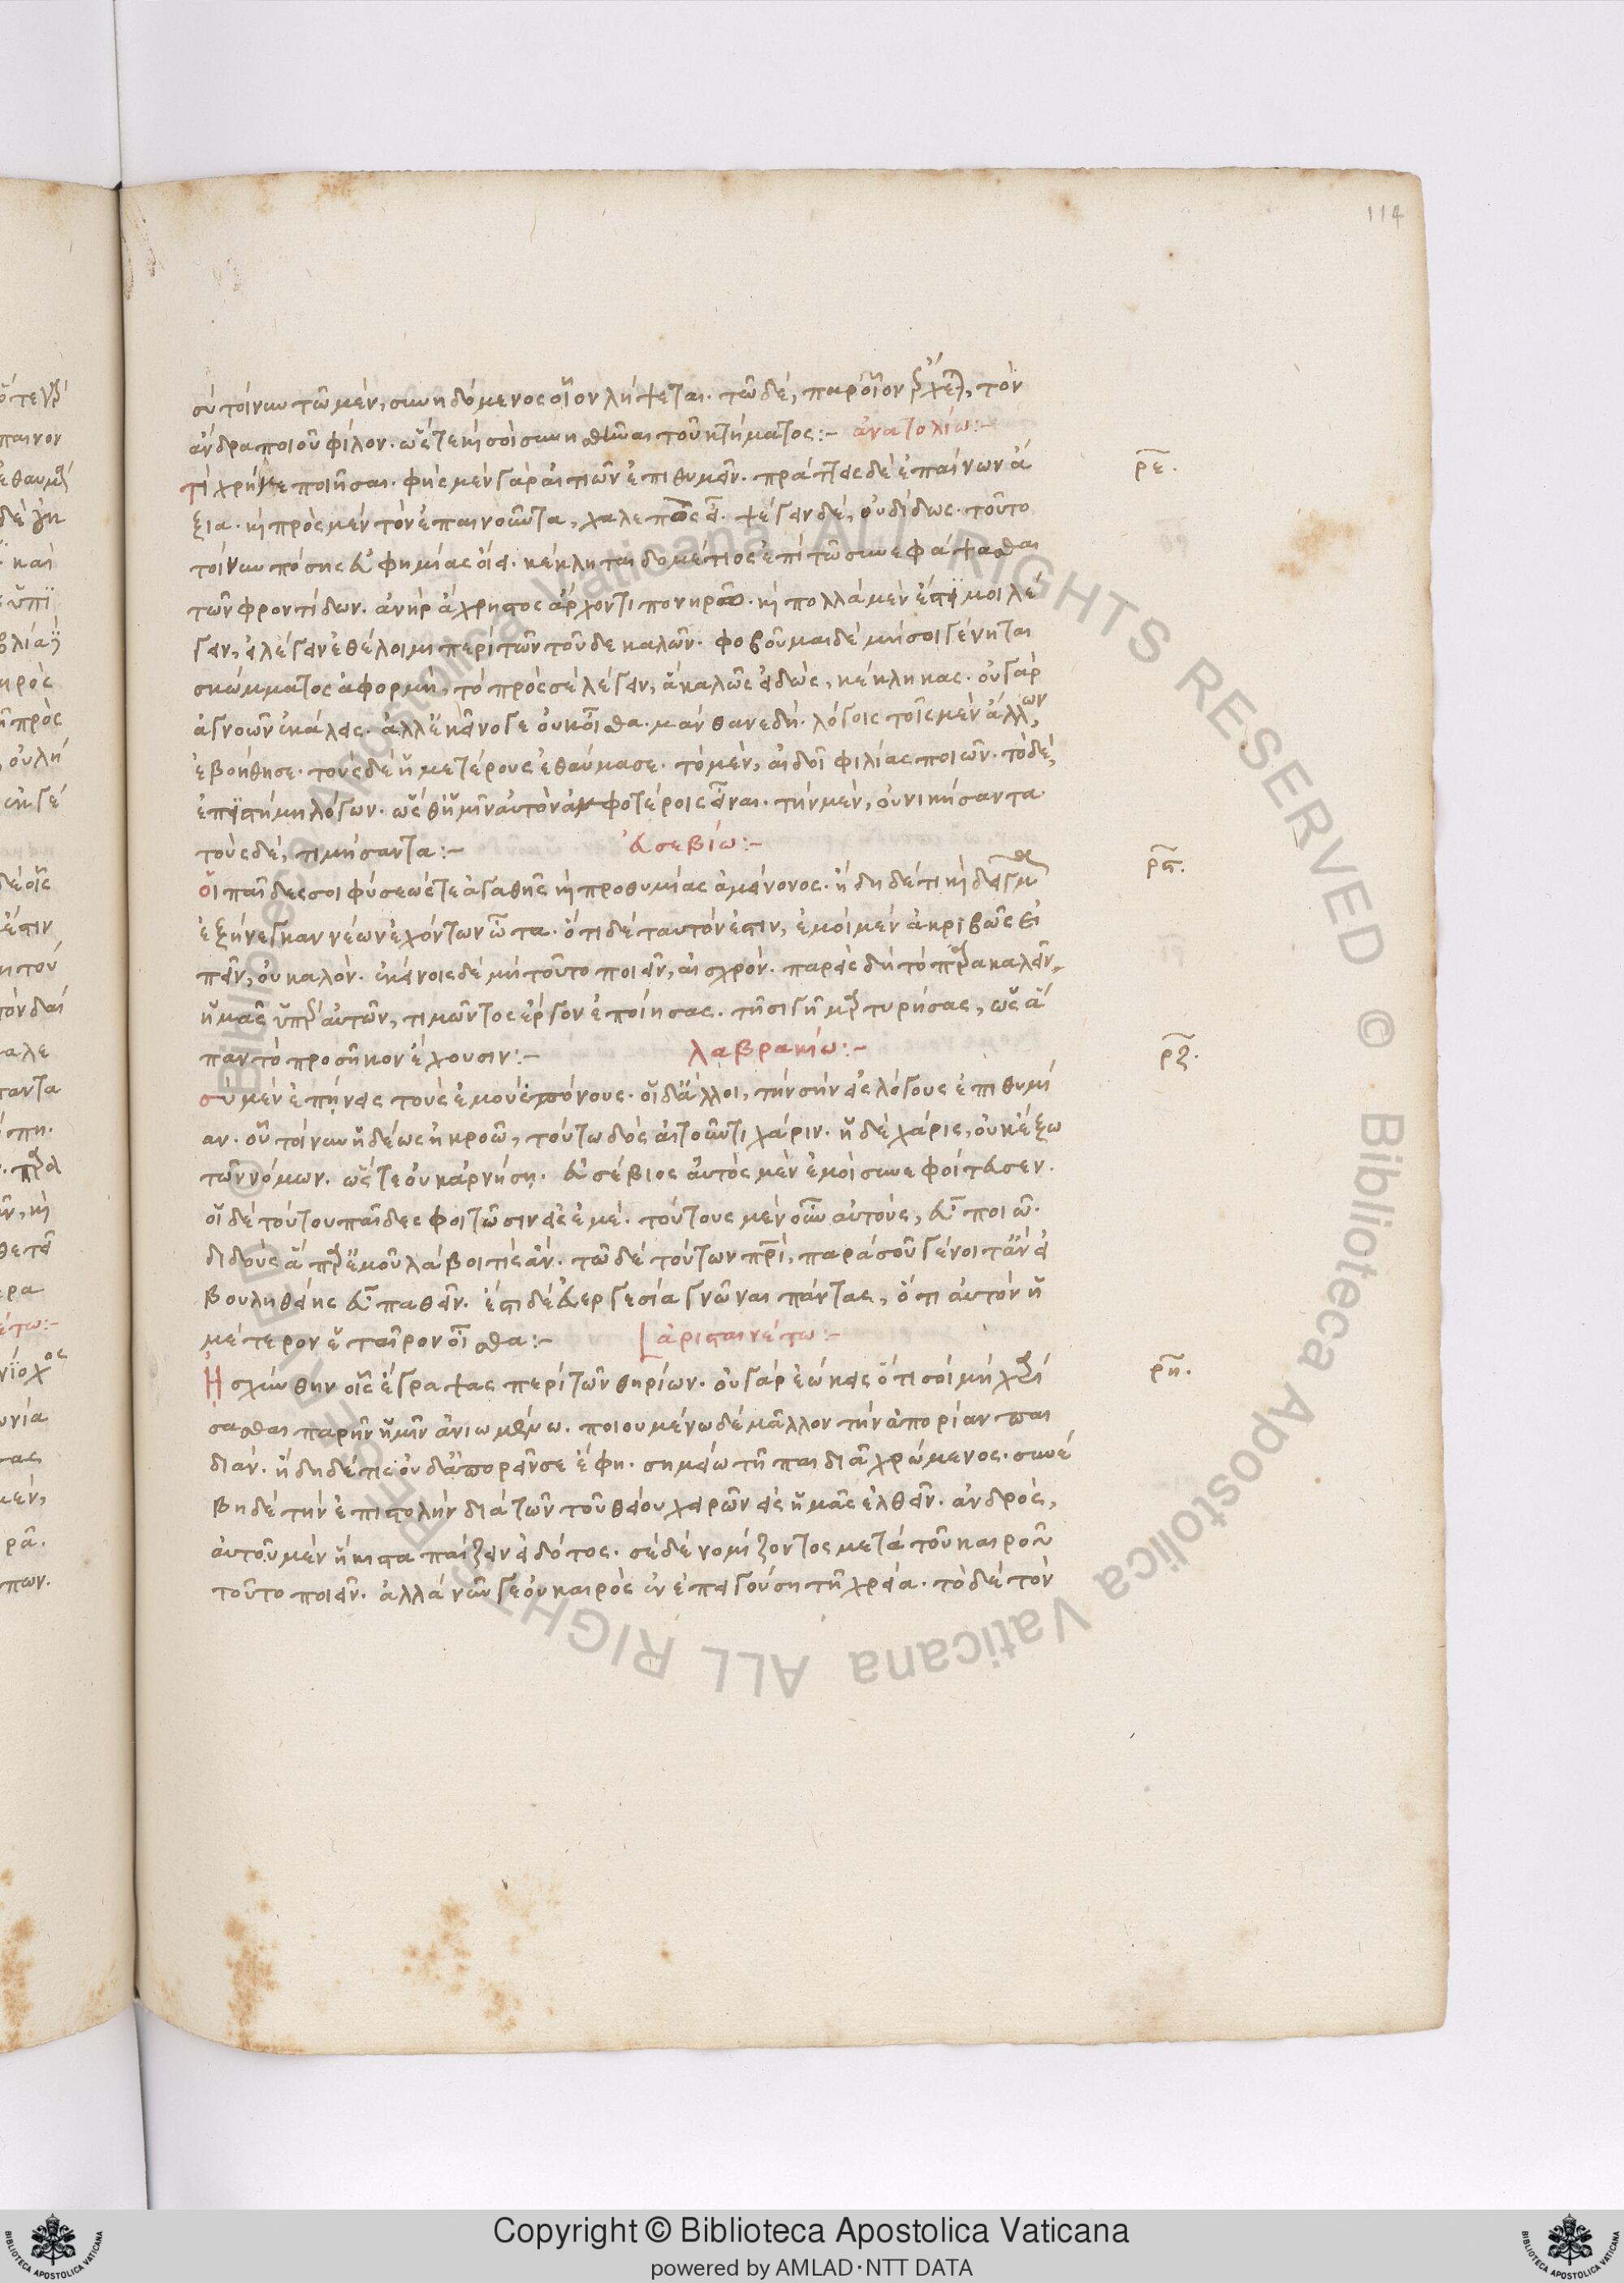 114
σὺ τοίνυν τῷ μὲν, συνηδόμενος οἷον λήψεται. τῷ δὲ, παρ' οἷον ἔρχεται, τὸν
ἄνδρα ποιοῦ φίλον. ὥστε καὶ σοὶ συνησθῆναι τοῦ κτήματος:- ἀνατολίω:-
ρε.
τί χρή με ποιῆσαι. φὴς μὲν γὰρ αἰτιῶν ἐπιθυμεῖν. πράττεις δὲ ἐπαίνων ἄ
ξια. καὶ πρὸς μὲν τὸν ἐπαινοῦντα, χαλεπὸς εἶ. ψέγειν δὲ, οὐ δίδως. τοῦτο
τοίνυν πόσης εὐφημίας οἴει. κέκληται δομέτιος ἐπὶ τῷ συνεφάψασθαι
τῶν φροντίδων. ἀνὴρ ἄχρηστος ἄρχοντι πονηρῶ. καὶ πολλὰ μὲν ἔστι μοι λέ
γειν, εἰ λέγειν ἐθέλοιμι περὶ τῶν τοῦδε καλῶν. φοβοῦμαι δὲ μή σοι γένηται
σκώμματος ἀφορμὴ, τὸ πρὸς σὲ λέγειν, ἃ καλῶς εἰδὼς, κέκληκας. οὐ γὰρ
ἀγνοῶν ἐκάλεις. ἀλλ' ἐκεῖνό γε οὐκ οἶσθα. μάνθανε δή. λόγοις τοῖς μὲν ἄλλων,
ἐβοήθησε. τοὺς δὲ ἡμετέρους ἐθαύμασε. τὸ μὲν, αἰδοῖ φιλίας ποιῶν. τὸ δὲ,
ἐπιστήμη λόγων. ὥσθ' ἡμῖν αὐτὸν ἀμφοτέροις εἶναι. τὴν μὲν, οὐ νικήσαντα.
τοὺς δὲ, τιμήσαντα:- εὐσεβίω:-
ρς.
οἱ παῖδές σοι φύσεώς τε ἀγαθῆς καὶ προθυμίας ἀμείνονος. ἤδη δέ τι καὶ δεῖγμα
ἐξήνεγκαν νέων ἐχόντων ὦτα. ὅ τι δὲ ταυτόν ἐστιν, ἐμοὶ μὲν ἀκριβῶς εἰ
πεῖν, οὐ καλόν. ἐκείνοις δὲ μὴ τοῦτο ποιεῖν, αἰσχρόν. παρεὶς δὴ τὸ παρακαλεῖν
ἡμᾶς ὑπὲρ αὐτῶν, τιμῶντος ἔργον ἐποίησας. τῇ σιγῇ μαρτυρήσας, ὡς ἅ
παν τὸ προσῆκον ἔχουσιν:- λαβρακίω:-
ρζ.
σὺ μὲν ἐπῄνεις τοὺς ἐμοὺς πόνους. οἱ δ' ἄλλοι, τὴν σὴν εἰς λόγους ἐπιθυμί
αν. οὗ τοίνυν ἡδέως ἠκροῶ, τούτω δὸς αἰτοῦντι χάριν. ἡ δὲ χάρις, οὐκ ἔξω
τῶν νόμων. ὥστε οὐκ ἀρνήσῃ. εὐσέβιος αὐτὸς μὲν ἐμοὶ συνεφοίτευσεν.
οἱ δὲ τούτου παῖδες φοιτῶσιν εἰς ἐμέ. τούτους μὲν οὖν αὐτοὺς, εὖ ποιῶ.
διδοὺς ἃ παρ' ἐμοῦ λάβοι τις ἄν. τῷ δὲ τούτων πατρὶ, παρὰ σοῦ γένοιτ' ἂν εἰ
βουληθείης εὖ παθεῖν. ἔστι δὲ εὐεργεσία γνῶναι πάντας, ὅτι αὐτὸν ἡ
μέτερον ἑταῖρον οἶσθα:- ἀρισταινέτω:-
ρη.
Ἠσχύνθην οἷς ἔγραψας περὶ τῶν θηρίων. οὐ γὰρ ἐώκεις ὅτι σοὶ μὴ χαρί
σασθαι παρῆν ἡμῖν ἀνιωμένω. ποιουμένω δὲ μᾶλλον τὴν ἀπορίαν παι
διάν. ἤδη δέ τις οὐδ' ἀπορεῖν σε ἔφη. σημείω τῇ παιδιᾷ χρώμενος. συνέ
βη δὲ τὴν ἐπιστολὴν διὰ τῶν τοῦ θείου χειρῶν εἰς ἡμᾶς ἐλθεῖν. ἀνδρὸς,
αὐτοῦ μὲν ἥκιστα παίζειν εἰδότος. σὲ δὲ νομίζοντος μετὰ τοῦ καιροῦ
τοῦτο ποιεῖν. ἀλλὰ νῦν γε οὐ καιρὸς ἐν ἐπειγούσῃ τῇ χρείᾳ. τὸ δὲ τὸν
Copyright © Biblioteca Apostolica Vaticana
powered by AMLAD·NTT DATA